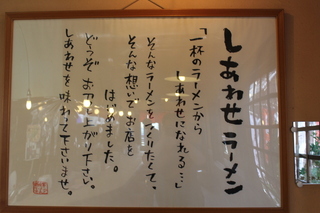 しあわせラーメン
「一杯のラーメンから
しあわせになれる…」
そんなラーメンをつくりたくて、
そんな想いでお店を
はじめました。
どうぞお召し上がり下さい。
しあわせを味わって下さいませ。